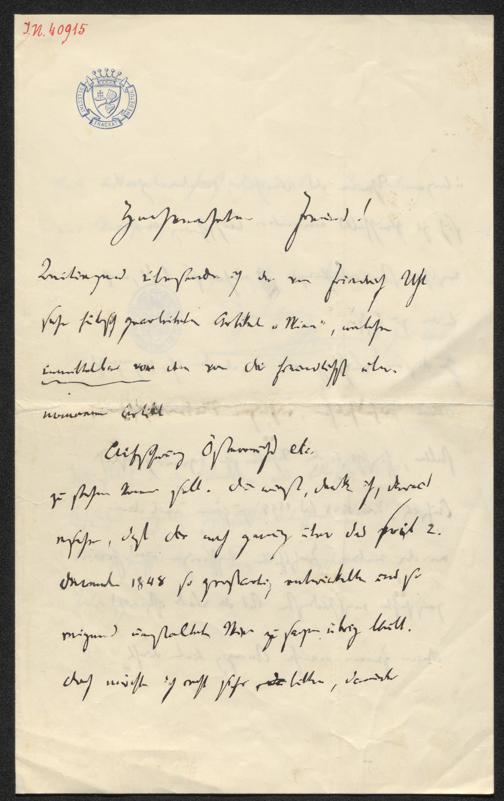 I.N. 40915
Hochverehrter Freund!
Beiliegend übersende ich den von Friedrich Uhl
sehr hübsch gearbeiteten Artikel „Wien“, welcher
unmittelbar vor dem von Dir freundlichst über-
nommenen Artikel
Aufschwung Österreichs etc.
zu stehen kommen soll. Du wirst, denke ich, daraus
ersehen, daß der noch genug über das seit 2.
December 1848 so großartig entwickelte und so
reizend umgestaltete Wien zu sagen übrig bleibt.
Doch möchte ich recht sehr bitten, darüber